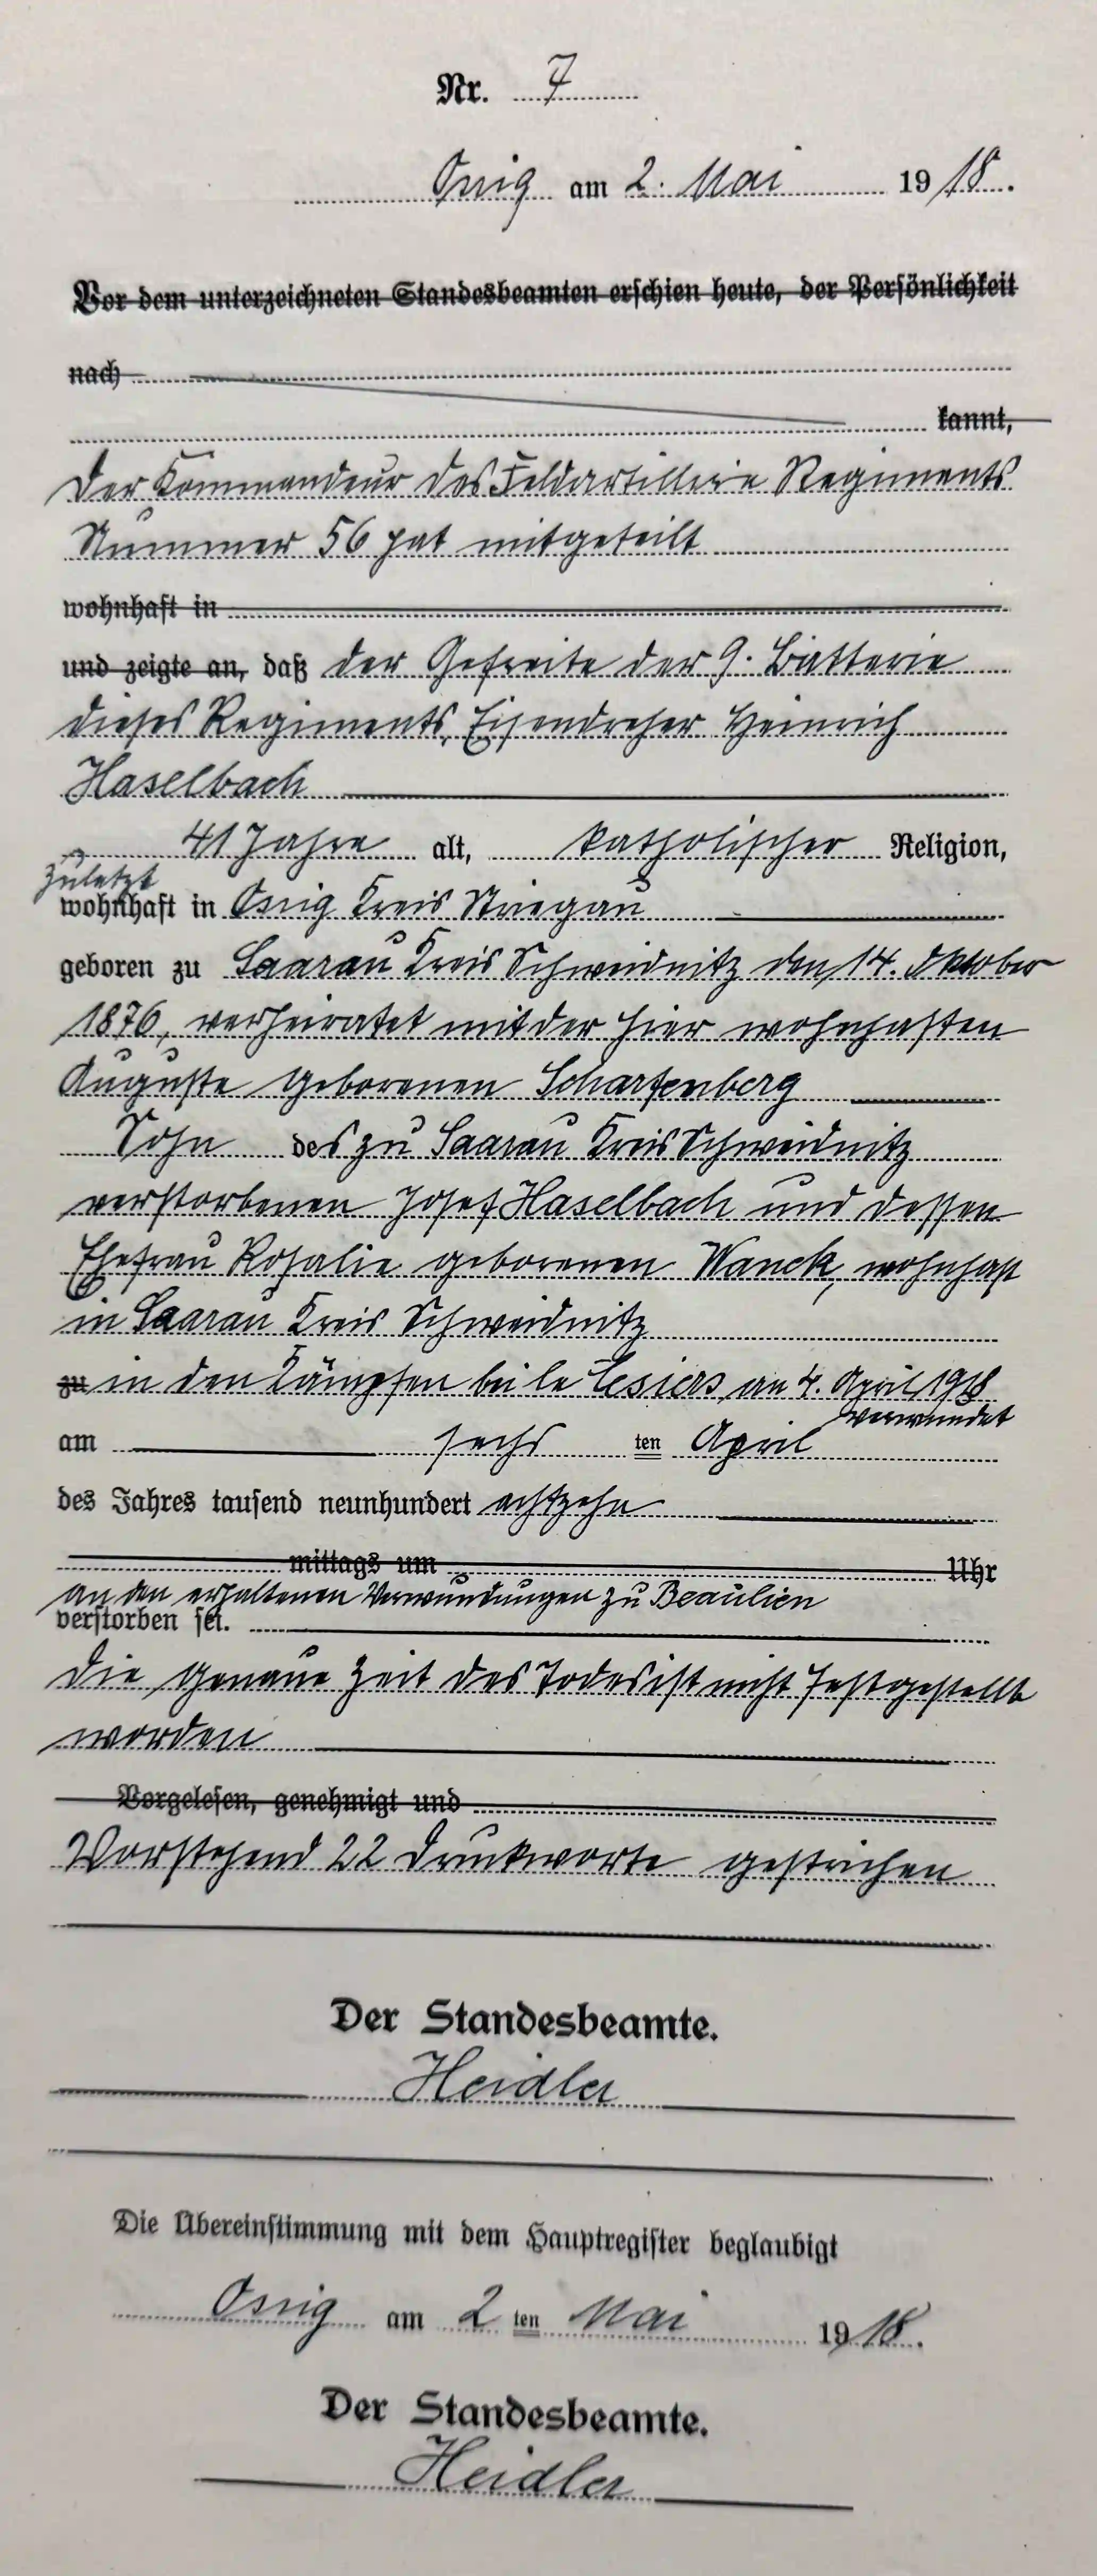 Nr. 7
Ossig am 2. Mai 1918.
Vor dem unterzeichneten Standesbeamten erschien heute, der Persönlichkeit
nach
kannt,
Der Kommandeur des Feldartillerie Regiments
Nummer 56 hat mitgeteilt
wohnhaft in
und zeigte an, daß der Gefreite der 9. Batterie
dieses Regiments, Eisendreher Heinrich
Haselbach
41 Jahre alt, katholischer Religion,
zuletzt
wohnhaft in Ossig Kreis Striegau
geboren zu Saarau Kreis Schweidnitz den 14. Oktober
1876, verheiratet mit der hier wohnhaften
Auguste geborenen Scharfenberg
Sohn des zu Saarau Kreis Schweidnitz
verstorbenen Josef Haselbach und dessen
Ehefrau Rosalie geborenen Wanck, wohnhaft
in Saarau Kreis Schweidnitz
zu in den Kämpfen bei le am 4. April 1918
verwundet
am sechs ten April
des Jahres tausend neunhundert achtzehn
mittags um Uhr
an den erhaltenen Verwundungen zu Beaulien
verstorben sei.
Die genaue Zeit des Todes ist nicht festgestellt
worden
Vorgelesen, genehmigt und
Vorstehend 22 Druckworte gestrichen
Der Standesbeamte.
Heidler
Die Übereinstimmung mit dem Hauptregister beglaubigt
Ossig am 2 ten Mai 1918.
Der Standesbeamte.
Heidler